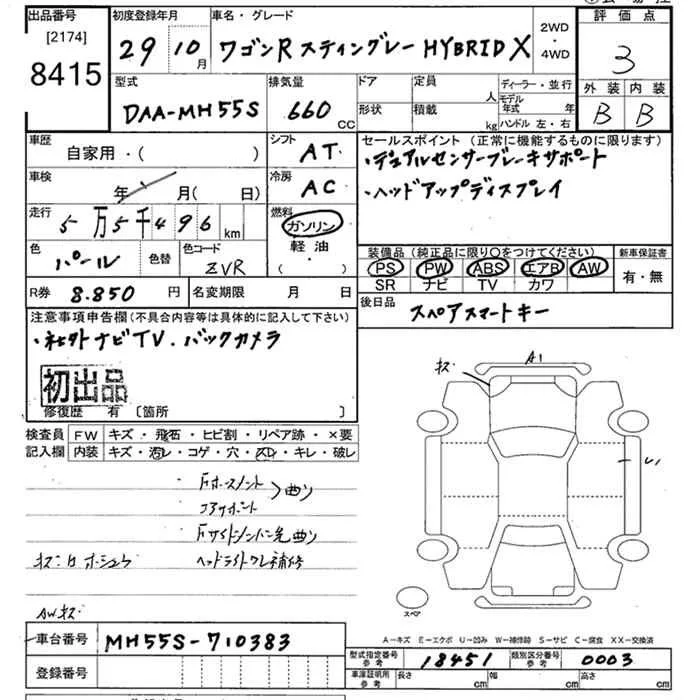 出品番号
[2174]
8415
初度登録年月
29 10月
車名・グレード
ワゴンR スティングレー HYBRID X
2WD
・
4WD
評価点
3
外装 内装
B B
型式
DAA-MH55S
排気量
660 CC
ドア
形状
定員 人
積載 kg
ディーラー・並行
モデル年式 年
ハンドル 左・右
車歴
自家用・( )
シフト
AT
セールスポイント (正常に機能するものに限ります)
・デュアルセンサーブレーキサポート
・ヘッドアップディスプレイ
車検
年 月(日)
冷房
AC
走行
5万5千496 km
燃料
ガソリン
軽油・
( )
色
パール
色替
色コード
ZVR
装備品 (純正品に限り○をつけてください)
PS PW ABS エアB AW
SR ナビ TV カワ
新車保証書
有・無
R券 8.850 円
名変期限 月 日
後日品
スペアスマートキー
注意事項申告欄(不具合内容等は具体的に記入して下さい)
・社外ナビTV.バックカメラ
初出品
修復歴 有 〔箇所 〕
検査員 FW キズ・飛石・ヒビ割・リペア跡・×要
記入欄 内装 キズ・汚レ・コゲ・穴・スレ・キレ・破レ
曲り
コアサポート
ヘッドライトウレ補修
AWキズ
キズ
A1
スペア
A-キズ E-エクボ U-凹み W-補修跡 S-サビ C-腐食 XX-交換済
車台番号
MH55S-710383
登録番号
型式指定番号
参考
18451
類別区分番号
参考
0003
車庫証明用
参考
長さ cm
幅 cm
高さ cm